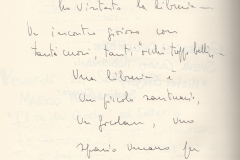 Ho visitato la libreria –
Un incontro gioioso con
tanti cuori, tanti "occhi troppo belli" –
Una libreria è
un piccolo santuario,
un focolare, uno
spazio umano per